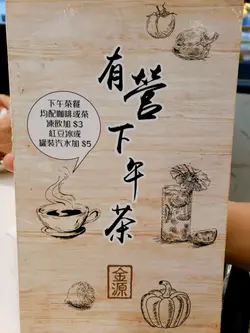 有營下午茶
下午茶餐
均配咖啡或茶
凍飲加 $3
紅豆冰或
罐裝汽水加 $5
金源